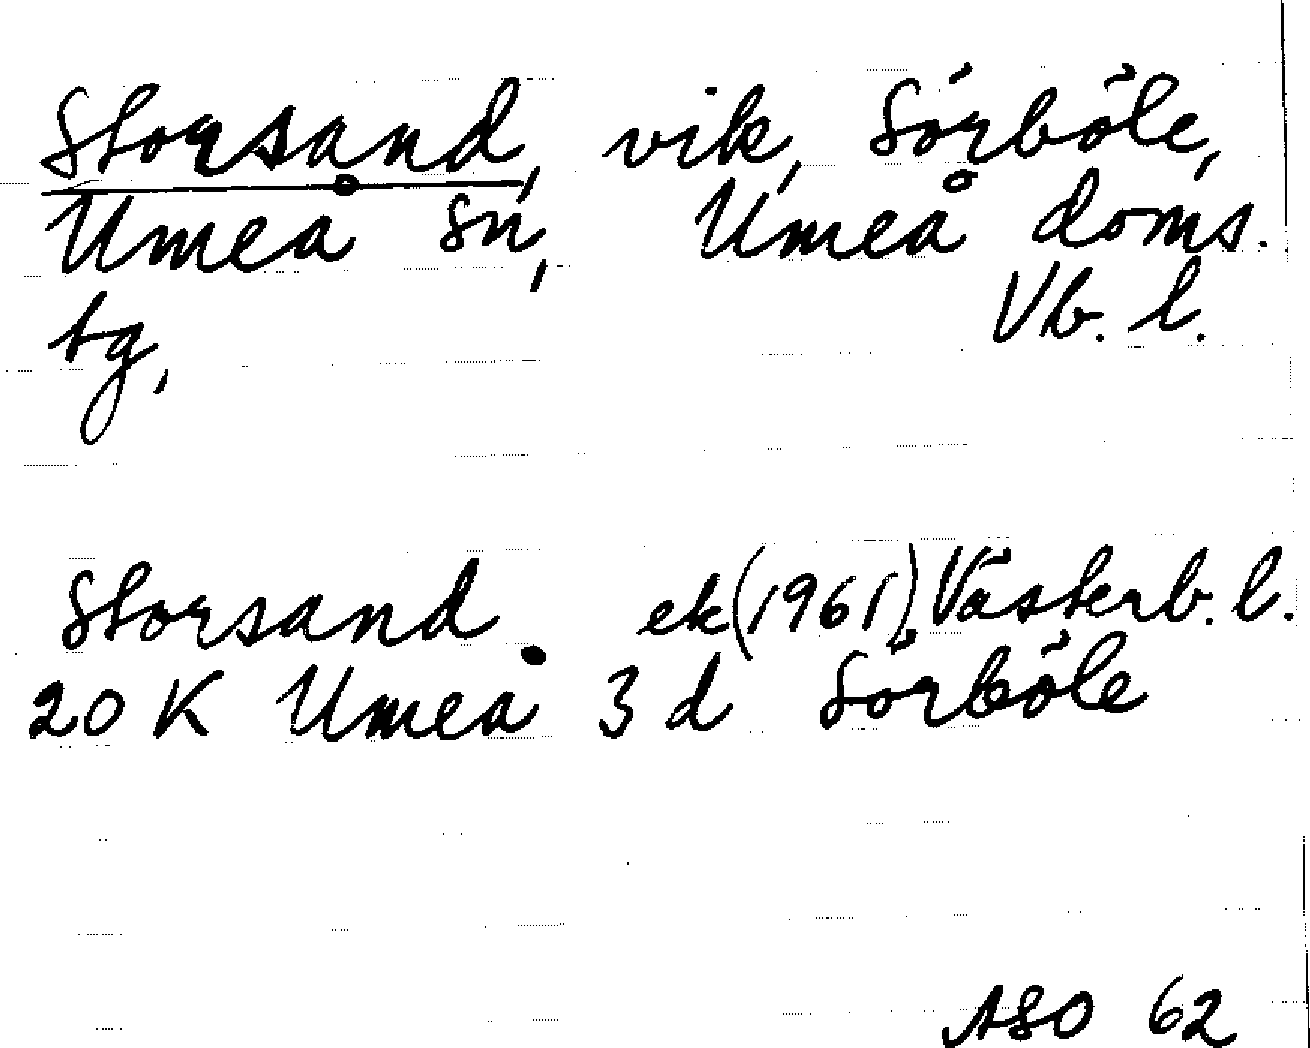 Storsand, vik, Sörböle,
Umeå sn, Umeå doms.
tg, Vb. l.
Storsand ek (1961), Västerb. l.
20 K Umeå 3 d Sörböle
ASO 62